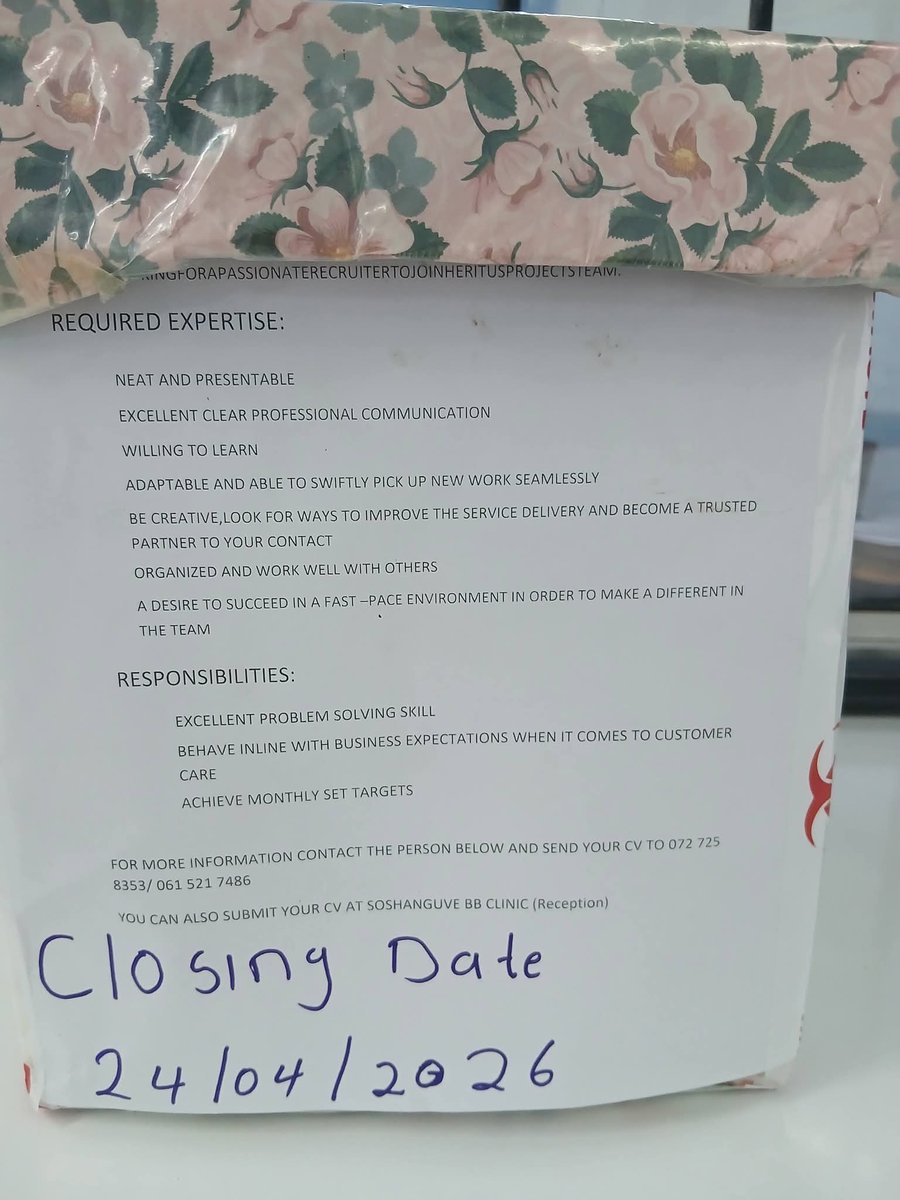 KINGFORAPASSIONATERECRUITERTOJOINHERITUSPROJECTSTEAM.
REQUIRED EXPERTISE:
NEAT AND PRESENTABLE
EXCELLENT CLEAR PROFESSIONAL COMMUNICATION
WILLING TO LEARN
ADAPTABLE AND ABLE TO SWIFTLY PICK UP NEW WORK SEAMLESSLY
BE CREATIVE,LOOK FOR WAYS TO IMPROVE THE SERVICE DELIVERY AND BECOME A TRUSTED
PARTNER TO YOUR CONTACT
ORGANIZED AND WORK WELL WITH OTHERS
A DESIRE TO SUCCEED IN A FAST –PACE ENVIRONMENT IN ORDER TO MAKE A DIFFERENT IN
THE TEAM
RESPONSIBILITIES:
EXCELLENT PROBLEM SOLVING SKILL
BEHAVE INLINE WITH BUSINESS EXPECTATIONS WHEN IT COMES TO CUSTOMER
CARE
ACHIEVE MONTHLY SET TARGETS
FOR MORE INFORMATION CONTACT THE PERSON BELOW AND SEND YOUR CV TO 072 725
8353/ 061 521 7486
YOU CAN ALSO SUBMIT YOUR CV AT SOSHANGUVE BB CLINIC (Reception)
Closing Date
24/04/2026